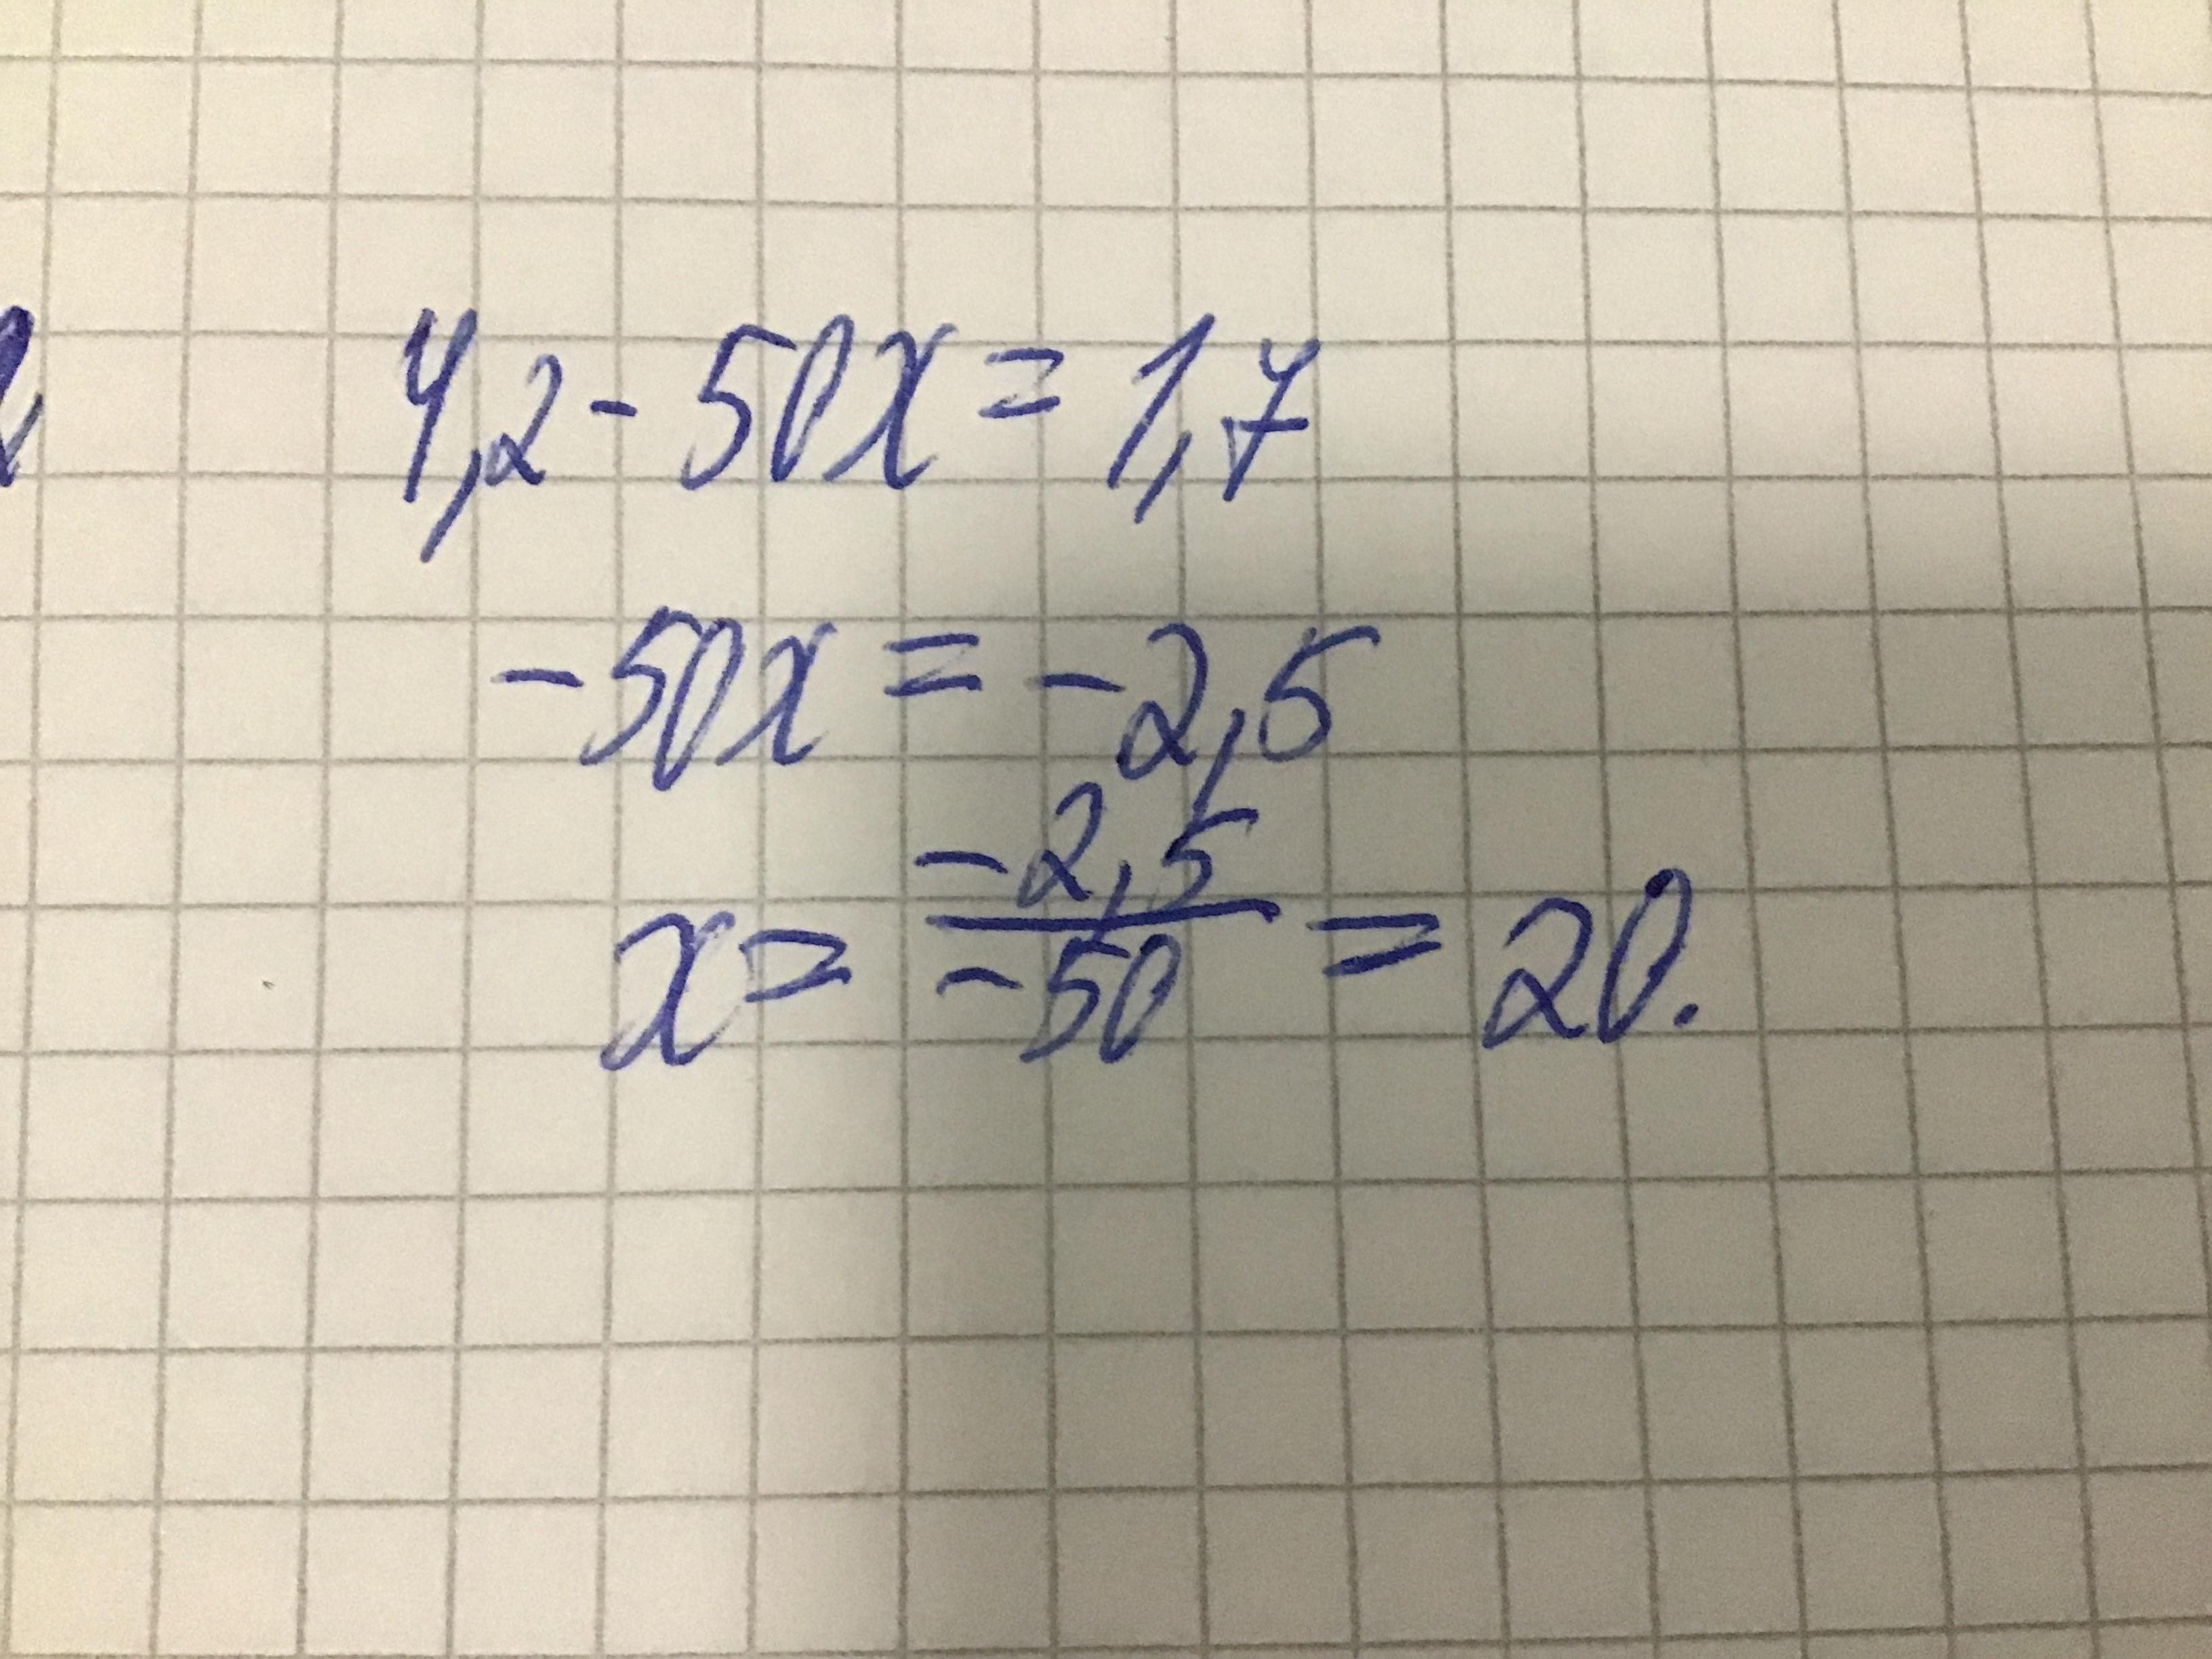 4,2 - 50x = 1,7
-50x = -2,5
x = -2,5/-50 = 20.